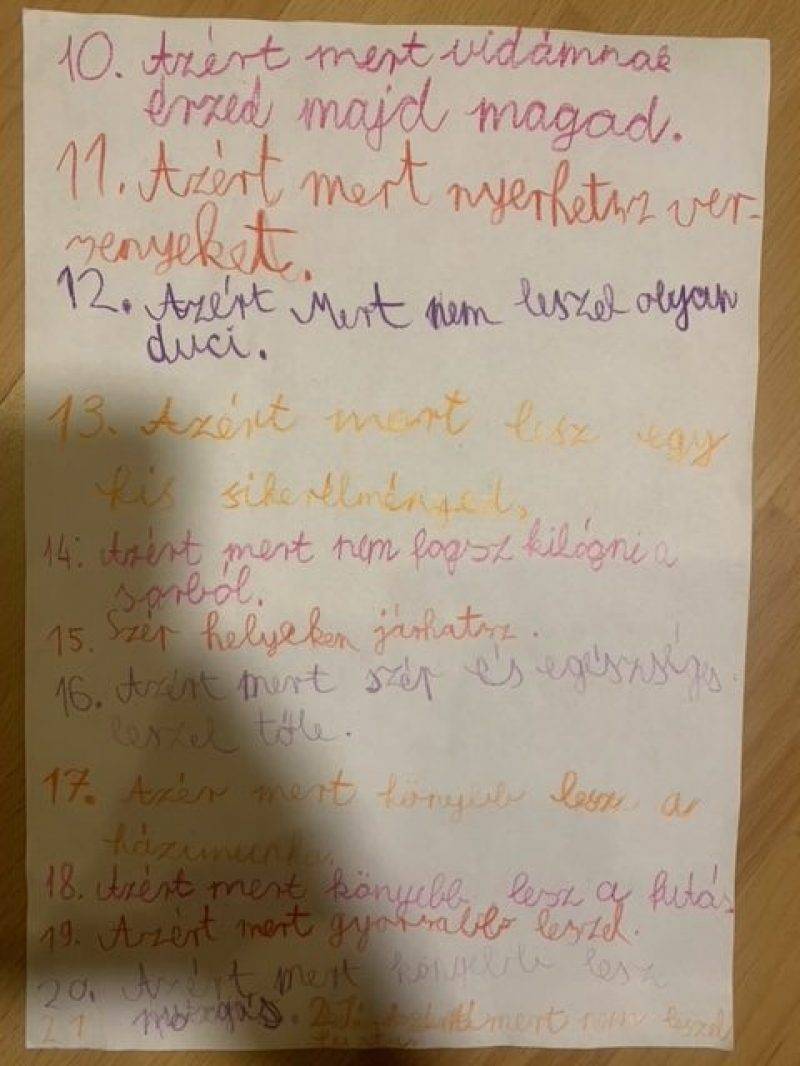 10. Azért mert vidámnak
érzed majd magad.
11. Azért mert nyerhetsz ver-
senyeket.
12. Azért Mert nem leszel olyan
duci.
13. Azért mert lesz egy
kis sikerélményed.
14. Azért mert nem fogsz kilógni a
sorból.
15. Szép helyeken járhatsz.
16. Azért mert szép és egészséges
leszel tőle.
17. Azér mert könyebb lesz a
házimunka.
18. Azért mert könyebb lesz a futás
19. Azért mert gyorsabb leszel.
20. Azért mert könyebb lesz
mozgás. 21. Azért mert nem leszel
21